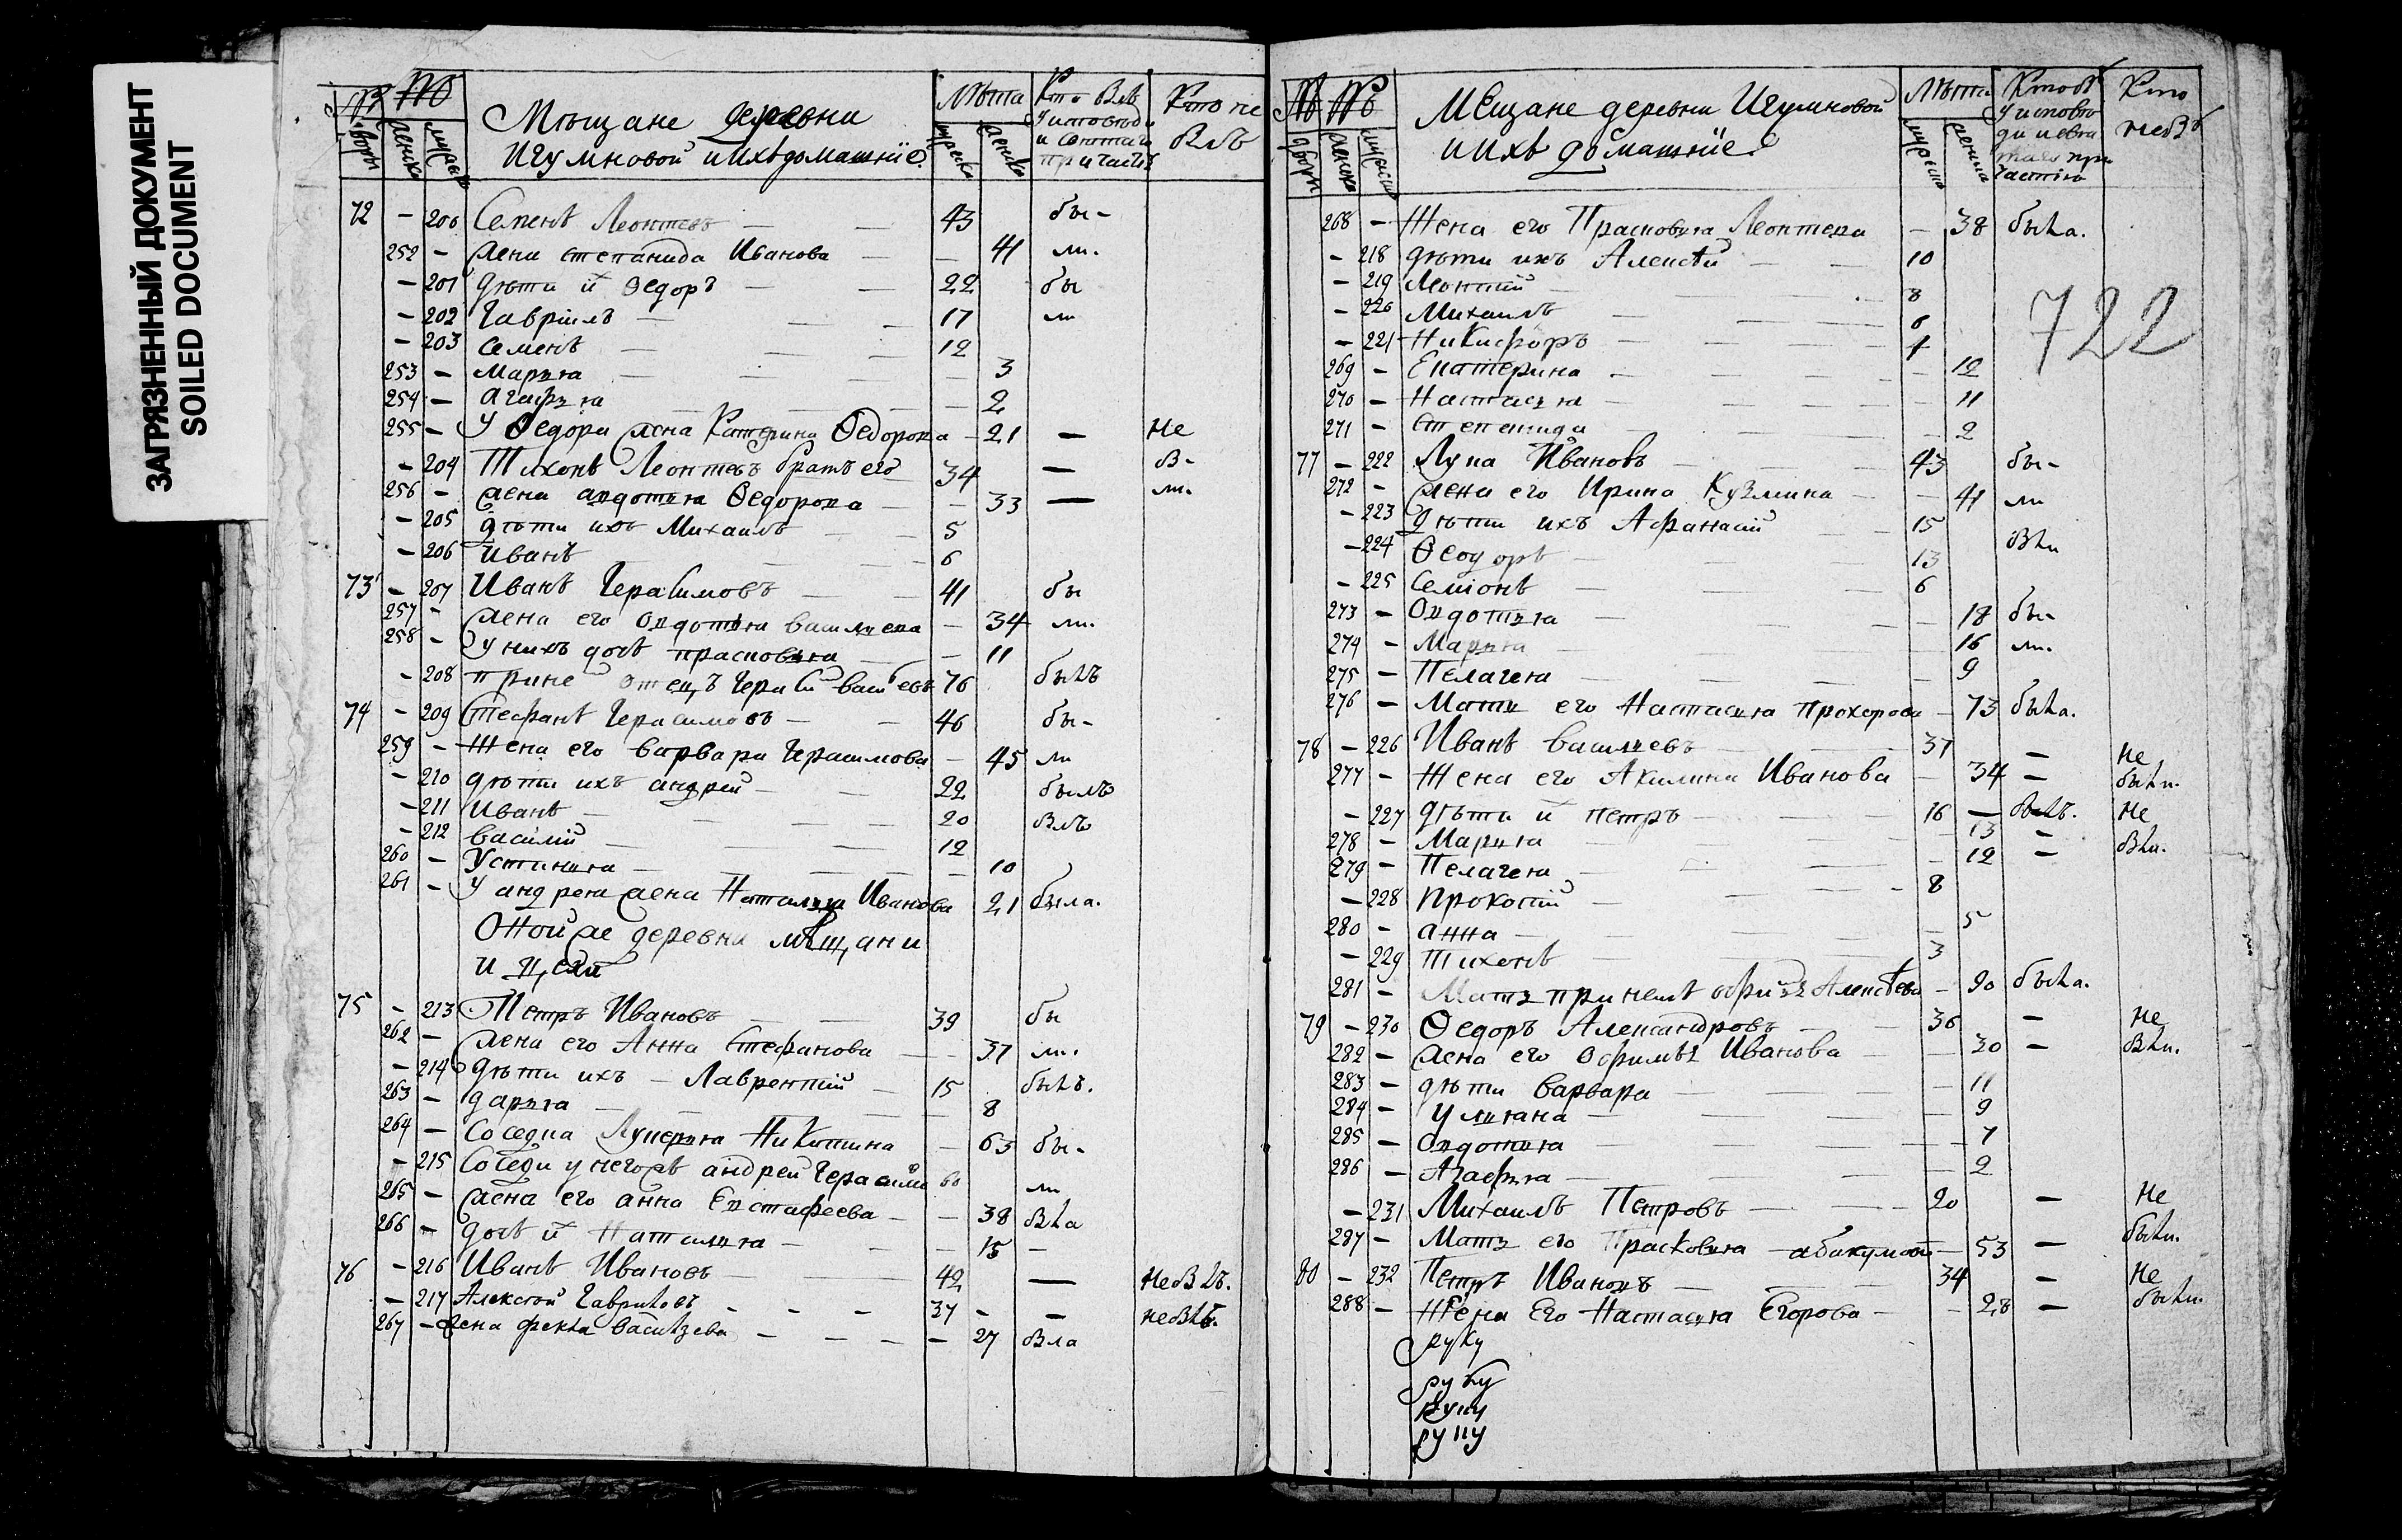 ЗАГРЯЗНЕННЫЙ ДОКУМЕНТ
SOILED DOCUMENT
Мѣщане деревни
Игумновой и ихъ домашнїе.
Лѣта
Кто былъ
у исповѣди
и святаго
причастія
Кто не
былъ
дворы женска мужска
мужска женска
72 – 200 Семенъ Леонтевъ – – 43 бы-
252 – жена степанида Иванова – – 41 ли.
– 201 дѣти и Ѳедоръ – – 22 бы
– 202 Гавріилъ – – – 17 ли
– 203 семенъ – – – 12
253 – марья – – – – 3
254 – агафья – – – – 2
255 – У Ѳедора жена Катерина Ѳедорова – 21 – Не
– 204 Тихонъ Леонтевъ братъ его 34 – б-
256 – жена авдотья Ѳедорова – – 33 – ли.
– 205 дѣти ихъ Михаилъ – – 5
– 206 Иванъ – – – 6
73 – 207 Иванъ Герасимовъ – – 41 бы
257 – жена его овдотья васильева – 34 ли.
258 – У нихъ дочь прасковья – – 11
– 208 при не отецъ Гераси васи евъ 76 былъ
74 – 209 Стефанъ Герасимовъ – – 46 бы-
259 – Жена его варвара Герасимова – 45 ли
– 210 дѣти ихъ андрей – – 22 былъ
– 211 Иванъ – – – 20 былъ
– 212 василій – – – 12
260 – Устинья – – – – 10
261 – У андрея жена Наталья Иванова 21 была.
Оной же деревни мѣщани
и цехи
75 – 213 Петръ Ивановъ – – 39 бы
262 – жена его Анна Стефанова – – 37 ли.
– 214 дѣти ихъ – Лаврентій – 15 былъ.
263 – дарья – – – – 8
264 – Соседка Лукерья Никитина – 63 бы-
– 215 Соседи у негожъ андрей Герасимо 60 ли
265 – жена его анна Евстафеева – – 38 была
266 – дочь и Наталья – – – 15 –
76 – 216 Иванъ Ивановъ – – 42 – Не былъ.
– 217 Алексѣй Гавриловъ – – – 37 – – не былъ.
267 – жена фекла Васильева – – – – 27 была
Мещане деревни Игумновой
и ихъ домашнїе.
Лѣта
Кто былъ
у исповѣ
ди и свя
таго при
частія
Кто
не бы
дворы женска мужска
мужска женска
722
268 – Жена его Прасковья Леонтева – 38 была.
– 218 дѣти ихъ Алексѣй – – 10
– 219 Леонтій – – – 8
– 220 Михаилъ – – – 6
– 221 Никифоръ – – – 1
269 – Екатерина – – – – 12
270 – Настасья – – – – 11
271 – Степанида – – – – 2
77 – 222 Лука Ивановъ – – 43 бы-
272 – жена его Ирина Кузмина – – 41 ли
– 223 дѣти ихъ Афанасій – – 15
– 224 Ѳеодоръ – – – 13 были
– 225 Семіонъ – – – 6
273 – Овдотья – – – – 18 бы-
274 – Марья – – – – 16 ли.
275 – Пелагея – – – – 9
276 – Мати его Настасья Прохорова – 73 была.
78 – 226 Иванъ васильевъ – – 37 – Не
277 – Жена его Акилина Иванова – 34 – были.
– 227 дѣти и петръ – – 16 – былъ. Не
278 – Марья – – – 13 – были.
279 – Пелагея – – – – 12 –
– 228 Прокопій – – – 8
280 – анна – – – – 5
– 229 Тихонъ – – – 3
281 – Мать при немъ Алексѣева – 90 была.
79 – 230 Ѳедоръ Александровъ – – 36 – Не
282 – жена его Иванова – – 30 – были.
283 – дѣти варвара – – – 11
284 – Ульяна – – – – 9
285 – Овдотья – – – – 7
286 – Агафья – – – – 2
– 231 Михаилъ Петровъ – – 20 – Не
287 – Мать его Прасковья – абакумова – 53 – были.
80 – 232 Петръ Ивановъ – – 34 – Не
288 – Жена Его Настасья Егорова – – 28 – были.
руку
руку
руку
руку